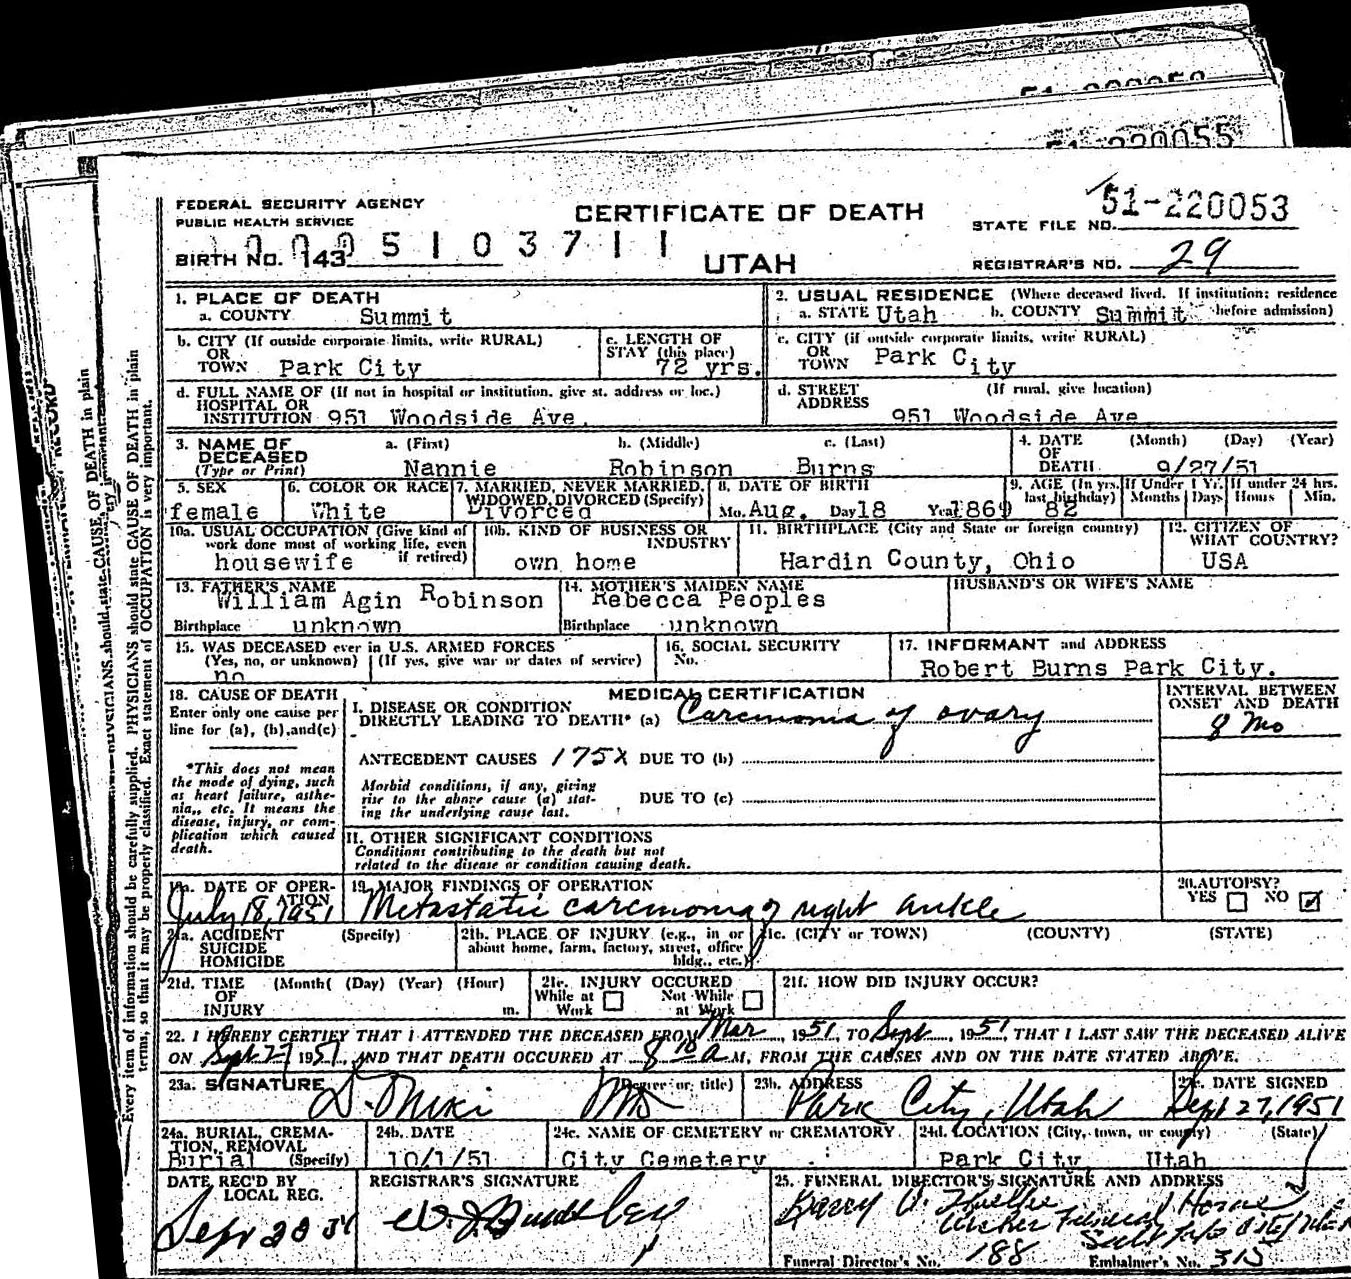 51-220055
51-220053
FEDERAL SECURITY AGENCY
PUBLIC HEALTH SERVICE
CERTIFICATE OF DEATH
STATE FILE NO.
BIRTH NO. 143
0005103711
UTAH
REGISTRAR'S NO. 29
1. PLACE OF DEATH
a. COUNTY Summit
2. USUAL RESIDENCE (Where deceased lived. If institution: residence before admission)
a. STATE Utah b. COUNTY Summit
b. CITY (If outside corporate limits, write RURAL) OR TOWN Park City
c. LENGTH OF STAY (this place) 72 yrs.
c. CITY (if outside corporate limits, write RURAL) OR TOWN Park City
d. FULL NAME OF (If not in hospital or institution, give st. address or loc.) HOSPITAL OR INSTITUTION 951 Woodside Ave.
d. STREET ADDRESS (If rural, give location) 951 Woodside Ave
3. NAME OF DECEASED (Type or Print) a. (First) Nannie b. (Middle) Robinson c. (Last) Burns
4. DATE OF DEATH (Month) (Day) (Year) 9/27/51
5. SEX female
6. COLOR OR RACE White
7. MARRIED, NEVER MARRIED, WIDOWED, DIVORCED (Specify) Divorced
8. DATE OF BIRTH Mo. Aug. Day 18 Year 1869
9. AGE (In yrs. last birthday) 82 If Under 1 Yr. Months Days If under 24 hrs. Hours Min.
10a. USUAL OCCUPATION (Give kind of work done most of working life, even if retired) housewife
10b. KIND OF BUSINESS OR INDUSTRY own home
11. BIRTHPLACE (City and State or foreign country) Hardin County, Ohio
12. CITIZEN OF WHAT COUNTRY? USA
13. FATHER'S NAME William Agin Robinson
Birthplace unknown
14. MOTHER'S MAIDEN NAME Rebecca Peoples
Birthplace unknown
HUSBAND'S OR WIFE'S NAME
15. WAS DECEASED ever in U.S. ARMED FORCES (Yes, no, or unknown) (If yes, give war or dates of service) no
16. SOCIAL SECURITY No.
17. INFORMANT and ADDRESS
Robert Burns Park City.
18. CAUSE OF DEATH
Enter only one cause per line for (a), (b), and (c)
MEDICAL CERTIFICATION
INTERVAL BETWEEN ONSET AND DEATH
I. DISEASE OR CONDITION DIRECTLY LEADING TO DEATH* (a) Carcinoma of ovary
8 Mo
ANTECEDENT CAUSES 175X DUE TO (b)
*This does not mean the mode of dying, such as heart failure, asthenia, etc. It means the disease, injury, or complication which caused death.
Morbid conditions, if any, giving rise to the above cause (a) stating the underlying cause last.
DUE TO (c)
II. OTHER SIGNIFICANT CONDITIONS
Conditions contributing to the death but not related to the disease or condition causing death.
19a. DATE OF OPERATION July 18, 1951
19. MAJOR FINDINGS OF OPERATION
Metastatic carcinoma of right ankle
20. AUTOPSY? YES NO
21a. ACCIDENT SUICIDE HOMICIDE (Specify)
21b. PLACE OF INJURY (e.g., in or about home, farm, factory, street, office bldg., etc.)
21c. (CITY or TOWN) (COUNTY) (STATE)
21d. TIME OF INJURY (Month) (Day) (Year) (Hour) m.
21e. INJURY OCCURED While at Work Not While at Work
21f. HOW DID INJURY OCCUR?
22. I HEREBY CERTIFY THAT I ATTENDED THE DECEASED FROM Mar, 1951, TO Sept, 1951, THAT I LAST SAW THE DECEASED ALIVE
ON Sept 27 1951, AND THAT DEATH OCCURED AT 8 10 a M., FROM THE CAUSES AND ON THE DATE STATED ABOVE.
23a. SIGNATURE (Degree or title) MD
23b. ADDRESS Park City, Utah
23c. DATE SIGNED Sept 27, 1951
24a. BURIAL, CREMATION, REMOVAL (Specify) Burial
24b. DATE 10/1/51
24c. NAME OF CEMETERY or CREMATORY City Cemetery
24d. LOCATION (City, town, or county) (State) Park City Utah
DATE REC'D BY LOCAL REG.
REGISTRAR'S SIGNATURE
25. FUNERAL DIRECTOR'S SIGNATURE AND ADDRESS
Funeral Home
Funeral Director's No. 188 Embalmer's No. 315
Every item of information should be carefully supplied. PHYSICIANS should state CAUSE OF DEATH in plain
terms, so that it may be properly classified. Exact statement of OCCUPATION is very important.